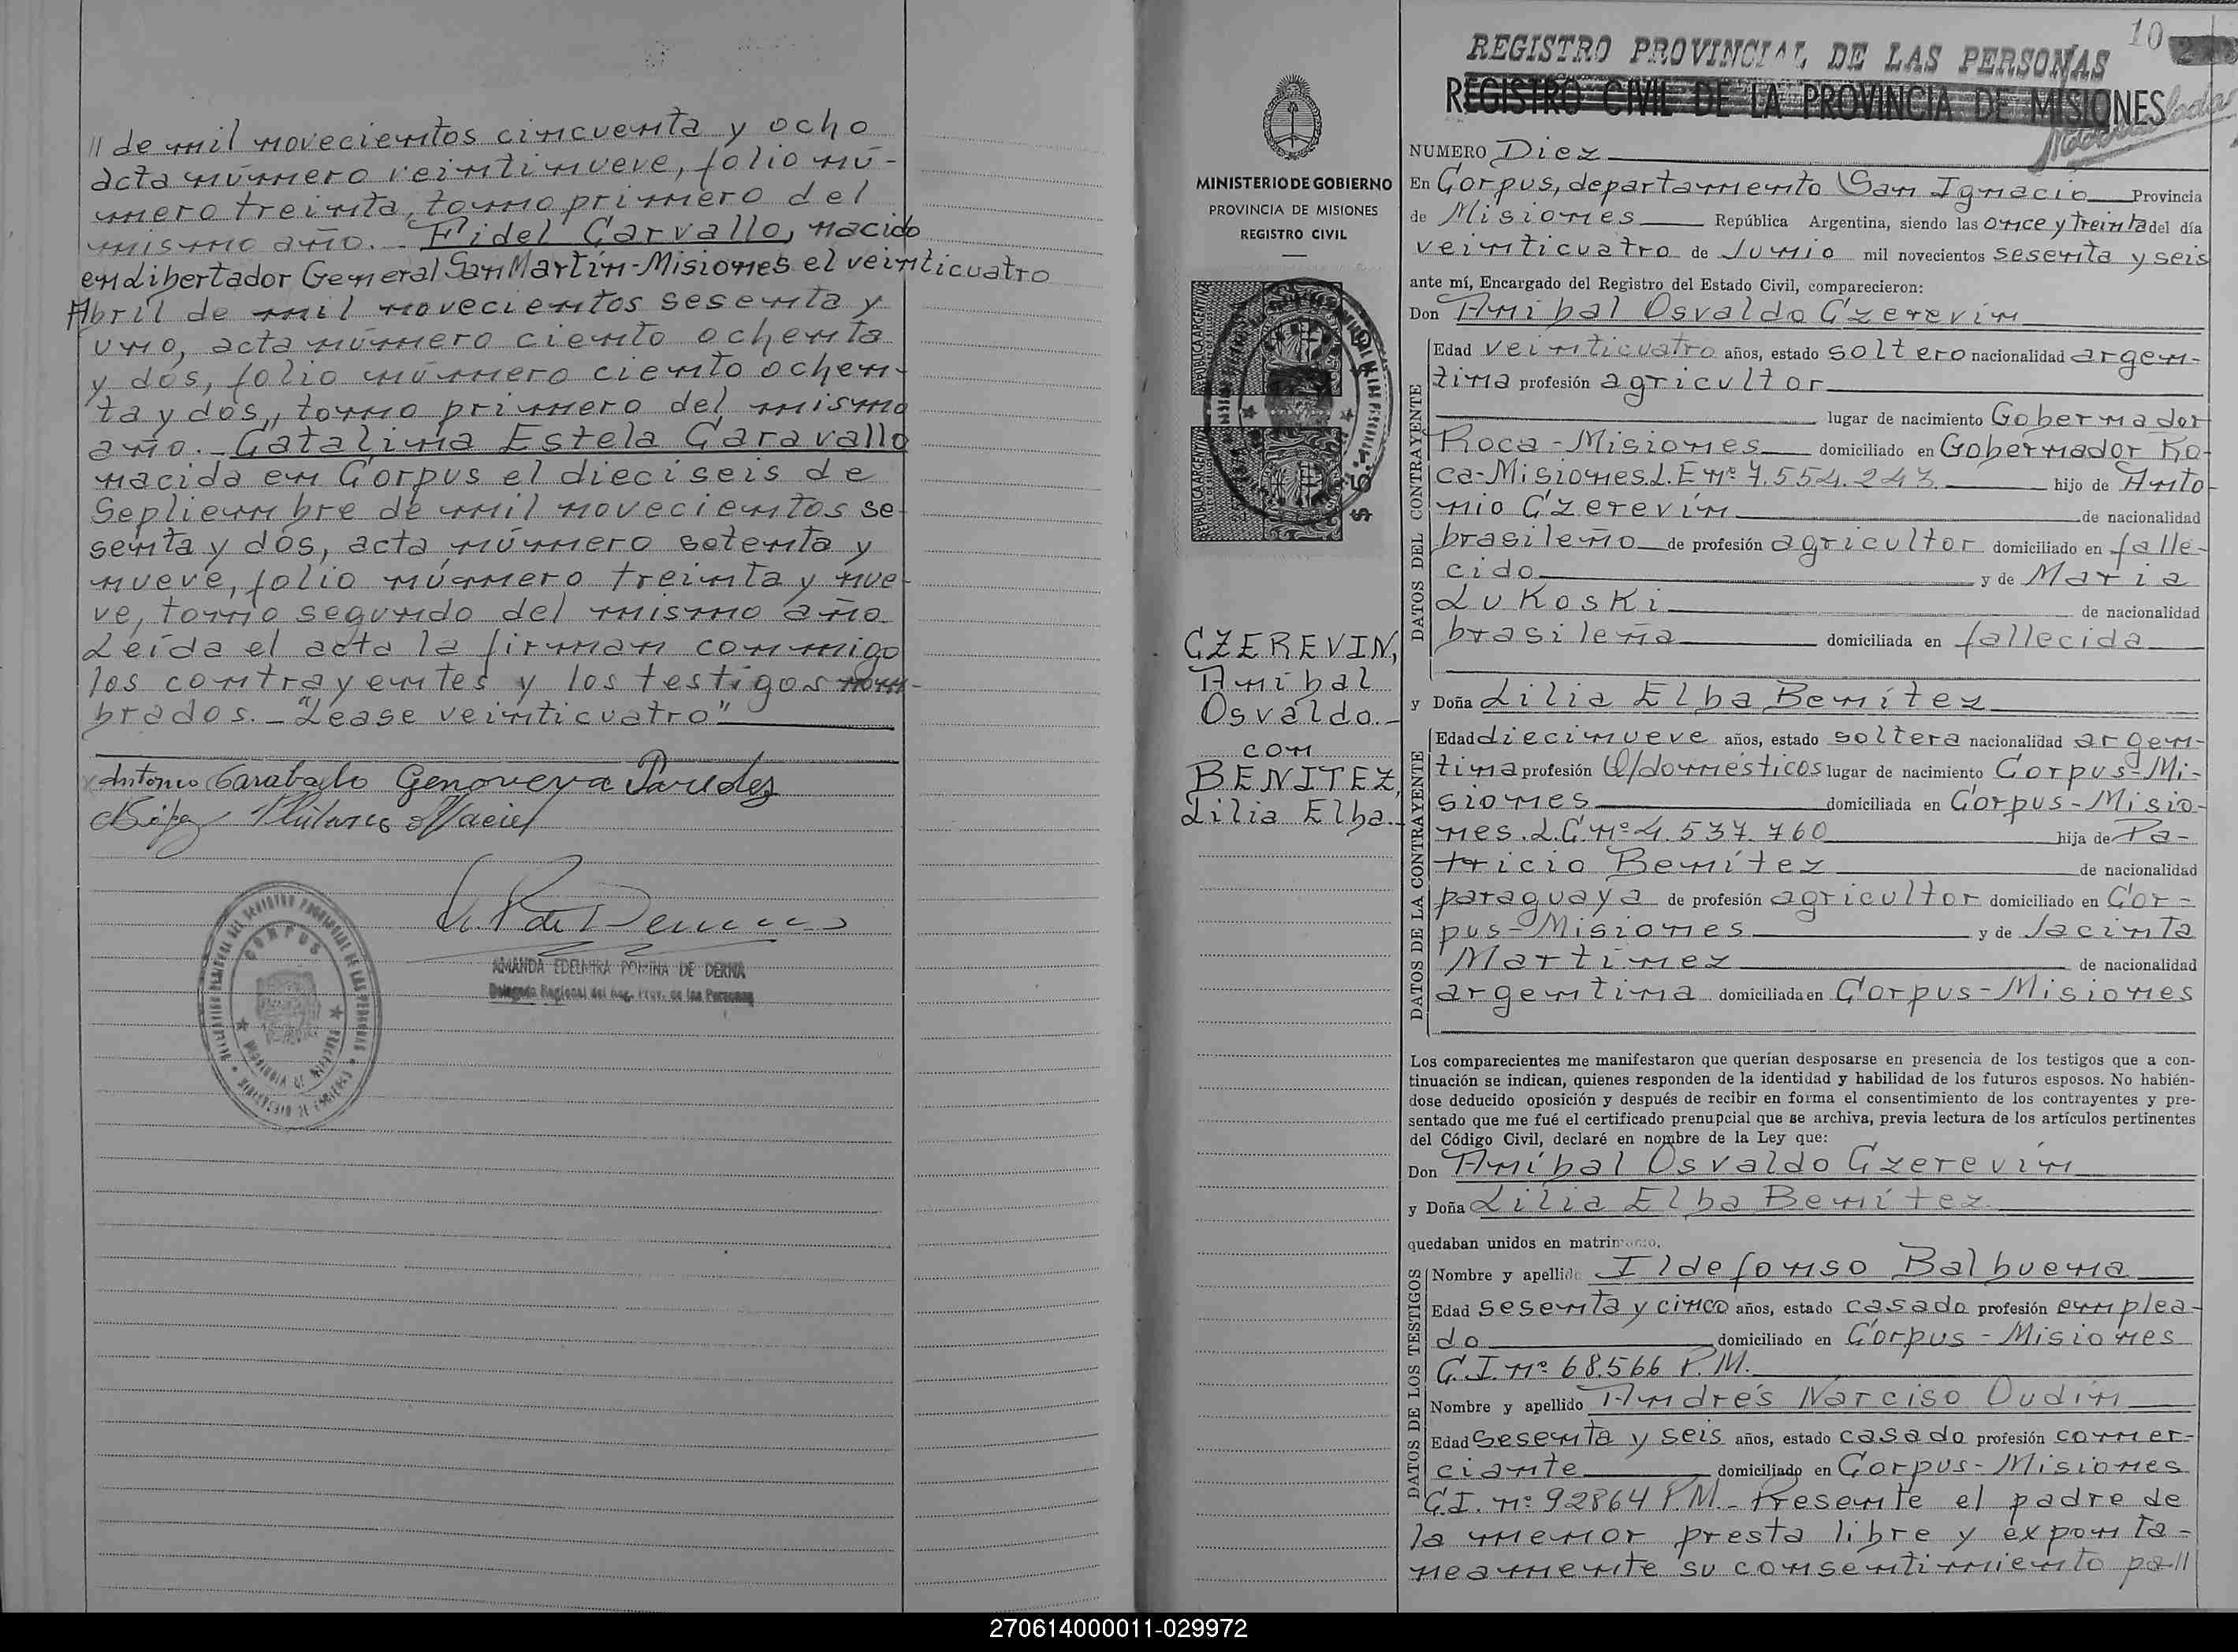 // de mil novecientos cincuenta y ocho
acta número veintinueve, folio nú-
mero treinta, tomo primero del
mismo año.- Fidel Carvallo, nacido
en Libertador General San Martín-Misiones el veinticuatro
Abril de mil novecientos sesenta y
uno, acta número ciento ochenta
y dos, folio número ciento ochen-
ta y dos, tomo primero del mismo
año.- Catalina Estela Caravallo
nacida en Corpus el dieciseis de
Septiembre de mil novecientos se-
senta y dos, acta número setenta y
nueve, folio número treinta y nue-
ve, tomo segundo del mismo año
Leída el acta la firman conmigo
los contrayentes y los testigos nom-
brados.- "Lease veinticuatro"
Antonio Caraballo Genoveva Paredes
CORPUS
AMANDA EDELMIRA DOMINA DE DERNA
Delegada Regional del Reg. Prov. de las Personas
10
REGISTRO PROVINCIAL DE LAS PERSONAS
REGISTRO CIVIL DE LA PROVINCIA DE MISIONES
MINISTERIO DE GOBIERNO
PROVINCIA DE MISIONES
REGISTRO CIVIL
REPUBLICA ARGENTINA
REPUBLICA ARGENTINA
CZEREVIN,
Anibal
Osvaldo.-
con
BENITEZ,
Lilia Elba.-
NUMERO Diez
En Corpus, departamento San Ignacio Provincia
de Misiones República Argentina, siendo las once y treinta del día
veinticuatro de Junio mil novecientos sesenta y seis
ante mí, Encargado del Registro del Estado Civil, comparecieron:
Don Anibal Osvaldo Czerevín
DATOS DEL CONTRAYENTE
Edad veinticuatro años, estado soltero nacionalidad argen-
tina profesión agricultor
lugar de nacimiento Gobernador
Roca-Misiones domiciliado en Gobernador Ro-
ca-Misiones. L.E nº 7.554.243 hijo de Anto-
nio Czerevín de nacionalidad
brasileño de profesión agricultor domiciliado en falle-
cido y de Maria
Lukoski de nacionalidad
brasileña domiciliada en fallecida
y Doña Lilia Elba Benítez
DATOS DE LA CONTRAYENTE
Edad diecinueve años, estado soltera nacionalidad argen-
tina profesión Q/domésticos lugar de nacimiento Corpus-Mi-
siones domiciliada en Corpus-Misio-
nes. L.C nº 4.537.760 hija de Pa-
tricio Benítez de nacionalidad
paraguaya de profesión agricultor domiciliado en Cor-
pus-Misiones y de Jacinta
Martinez de nacionalidad
argentina domiciliada en Corpus-Misiones
Los comparecientes me manifestaron que querían desposarse en presencia de los testigos que a con-
tinuación se indican, quienes responden de la identidad y habilidad de los futuros esposos. No habién-
dose deducido oposición y después de recibir en forma el consentimiento de los contrayentes y pre-
sentado que me fué el certificado prenupcial que se archiva, previa lectura de los artículos pertinentes
del Código Civil, declaré en nombre de la Ley que:
Don Aníbal Osvaldo Czerevín
y Doña Lilia Elba Benítez
quedaban unidos en matrimonio.
DATOS DE LOS TESTIGOS
Nombre y apellido Ildefonso Balbuena
Edad sesenta y cinco años, estado casado profesión emplea-
do domiciliado en Corpus-Misiones
C.I. nº 68.566 P.M.
Nombre y apellido Andrés Narciso Oudin
Edad sesenta y seis años, estado casado profesión comer-
ciante domiciliado en Corpus-Misiones
C.I. nº 92864 P.M.- Presente el padre de
la menor presta libre y exponta-
neamente su consentimiento pa//
270614000011-029972